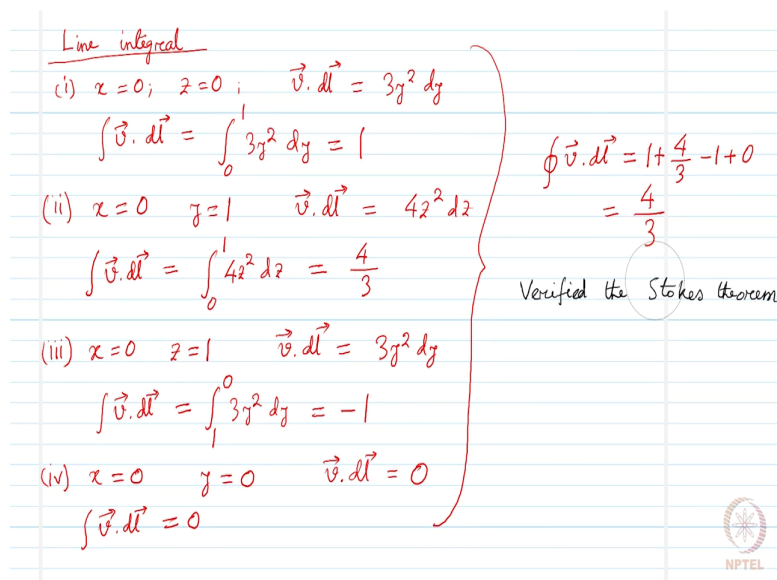 Line integral
(i) x = 0; z = 0; v⃗.dl⃗ = 3y² dy
∫v⃗.dl⃗ = ∫₀¹ 3y² dy = 1
(ii) x = 0 y = 1 v⃗.dl⃗ = 4z² dz
∫v⃗.dl⃗ = ∫₀¹ 4z² dz = 4/3
(iii) x = 0 z = 1 v⃗.dl⃗ = 3y² dy
∫v⃗.dl⃗ = ∫₁⁰ 3y² dy = -1
(iv) x = 0 y = 0 v⃗.dl⃗ = 0
∫v⃗.dl⃗ = 0
∮v⃗.dl⃗ = 1 + 4/3 - 1 + 0
= 4/3
Verified the Stokes theorem
NPTEL